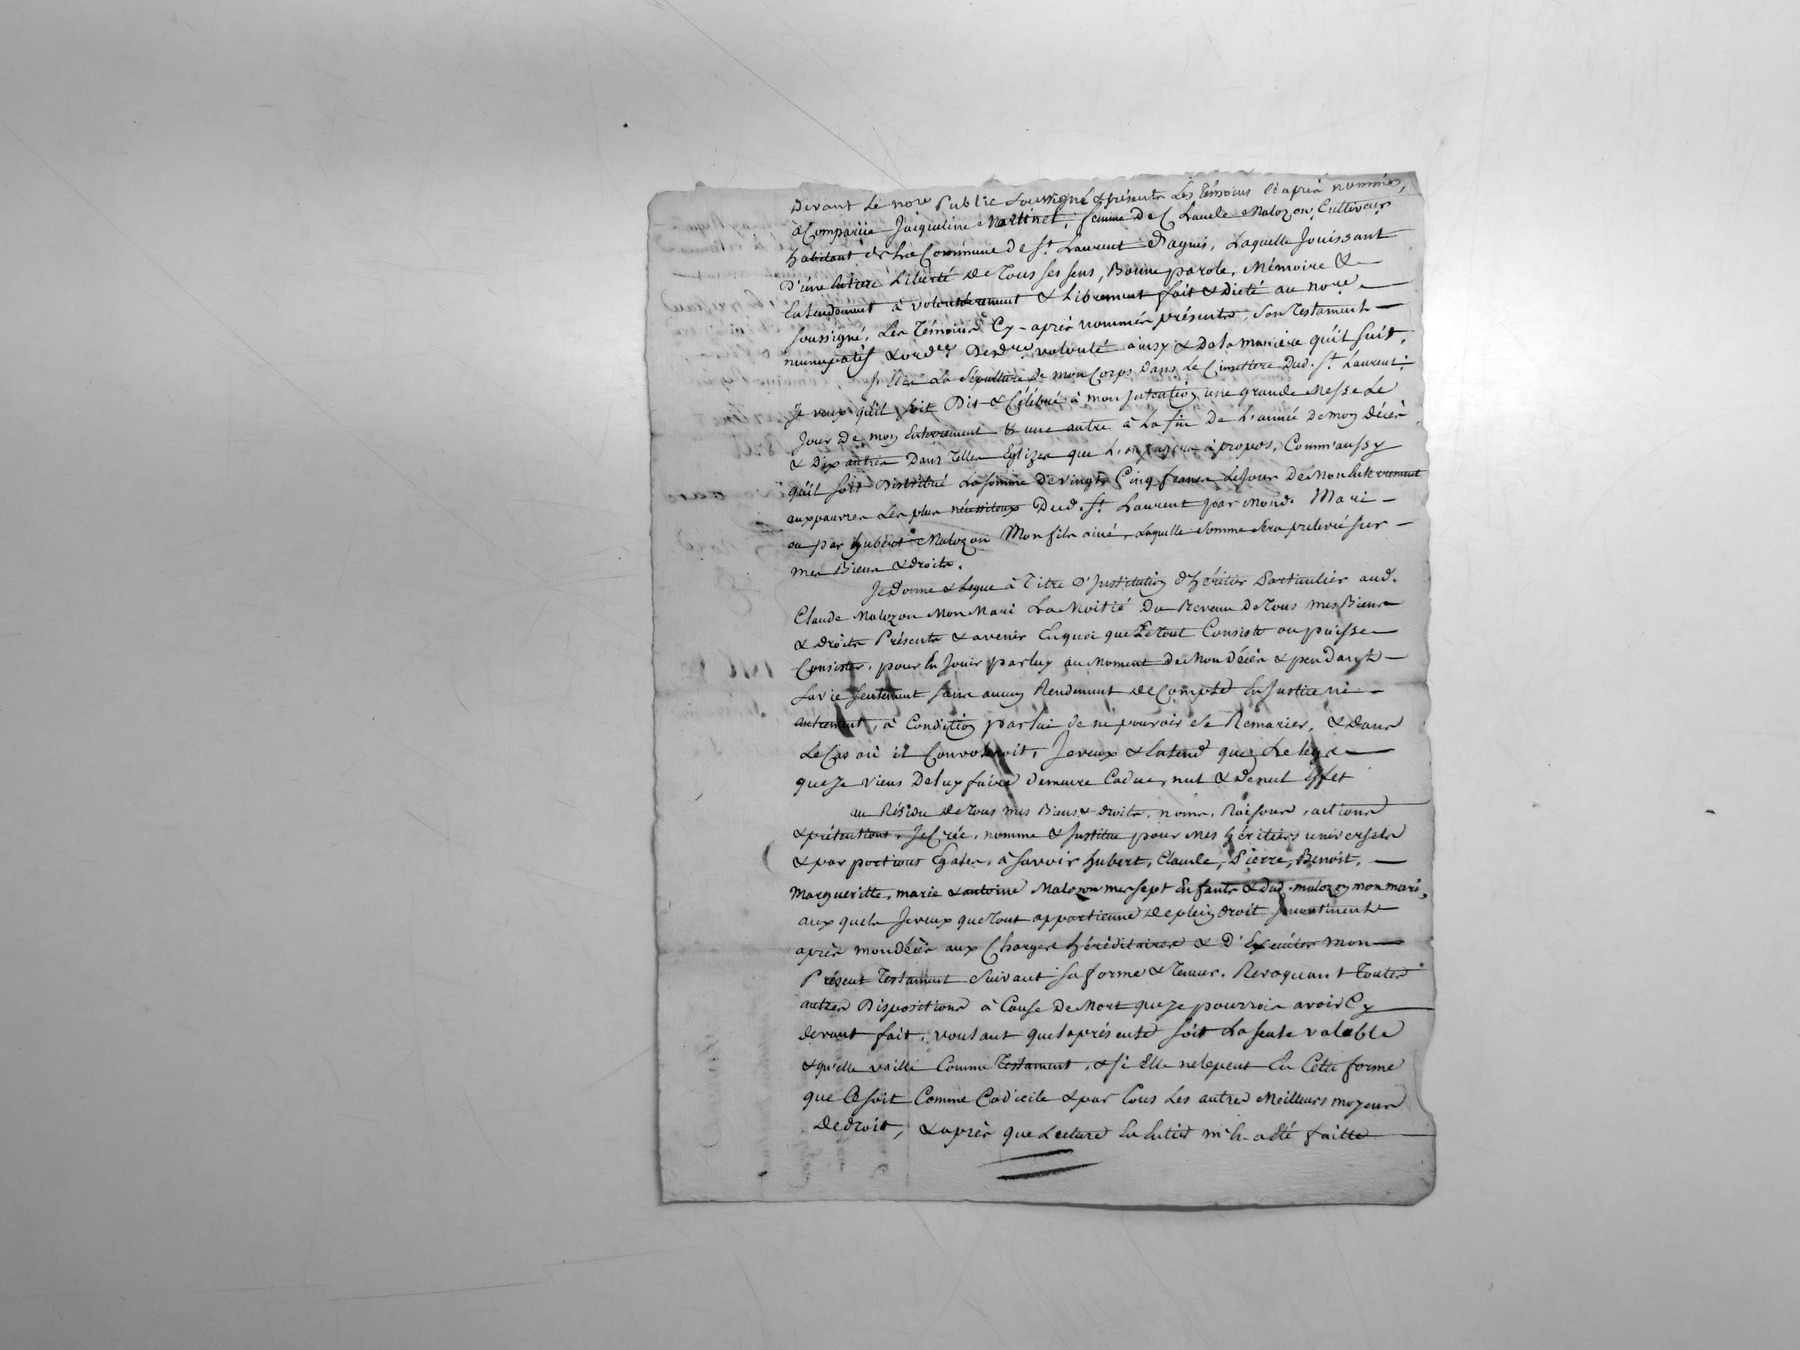 Devant Le no.re Public Soussigné & présents Les Témoins ci après nommés,
à Comparüe Jacqueline Martinet, femme de Claude Malozon, Cultivateur
habitant de La Commune de S.t Laurent d'agnis, Laquelle Jouissant
d'une Entiere Liberté de Tous ses sens, Bonne parole, Mémoire &
Entendement à volontairement & Librement fait & dicté au no.re
soussigné, Les Témoins Cy-après nommés présents, son Testament
nuncupatif & ord.re de d.re volonté ainsy & de la maniere qu'il suit,
La Sépulture de mon Corps Dans Le Cimetiere Dud. S.t Laurent;
Je veux qu'il soit Dis & Célébré à mon Intention une grande Messe Le
Jour de mon Enterrement & une autre à La fin De L'année de mon décès
& Dix autres Dans Telles Eglizes que L'on jugera à propos, Comm'aussy
qu'il soit Distribué La somme de vingt Cinq francs Le Jour De Mon Enterrement
aux pauvres Les plus nécessiteux Dud. S.t Laurent par Mond. Mari
ou par hubert Malozon Mon fils ainé, Laquelle somme sera prelevée sur
mes Biens & droits.
Je Donne & Legue à Titre d'Institution d'héritier Particulier aud.
Claude Malozon Mon Mari La Moitié Du Revenu De Tous mes Biens
& droits Présents & avenir En quoi que Le Tout Consiste ou puisse
Consister, pour En Jouir par luy au Moment de Mon Décès & pendant
sa vie seulement sans aucun Rendement de Compte En Justice ni
autrement, à Condition par lui de ne pouvoir se Remarier, & dans
Le Cas où il Convoleroit, Je veux & Entend que Le legs
que Je viens De luy faire demeure Caduc, nul & de nul Effet
au Résidu de Tous mes Biens & droits, noms, Raisons, actions
& prétentions, Je Crée, nomme & Institue pour Mes héritiers universels
& par portions Egales, à Savoir hubert, Claude, Pierre, Benoit,
Margueritte, marie & antoine Malozon mes sept Enfants & dud. malozon mon mari,
aux quels Je veux que Tout appartienne de plein droit Incontinent
après mon décès aux Charges héréditaires & D'Exécuter mon
Présent Testament suivant sa forme & teneur. Revoquant Toutes
autres Dispositions à Cause De Mort que Je pourrois avoir Cy
devant fait, voulant que la présente soit La seule valable
& qu'elle vaille Comme Testament, & si Elle ne le peut En Cette forme
que Ce soit Comme Codicile & par Tous Les autres Meilleurs moyens
de droit, & après que Lecture En Entier m'en a été faitte